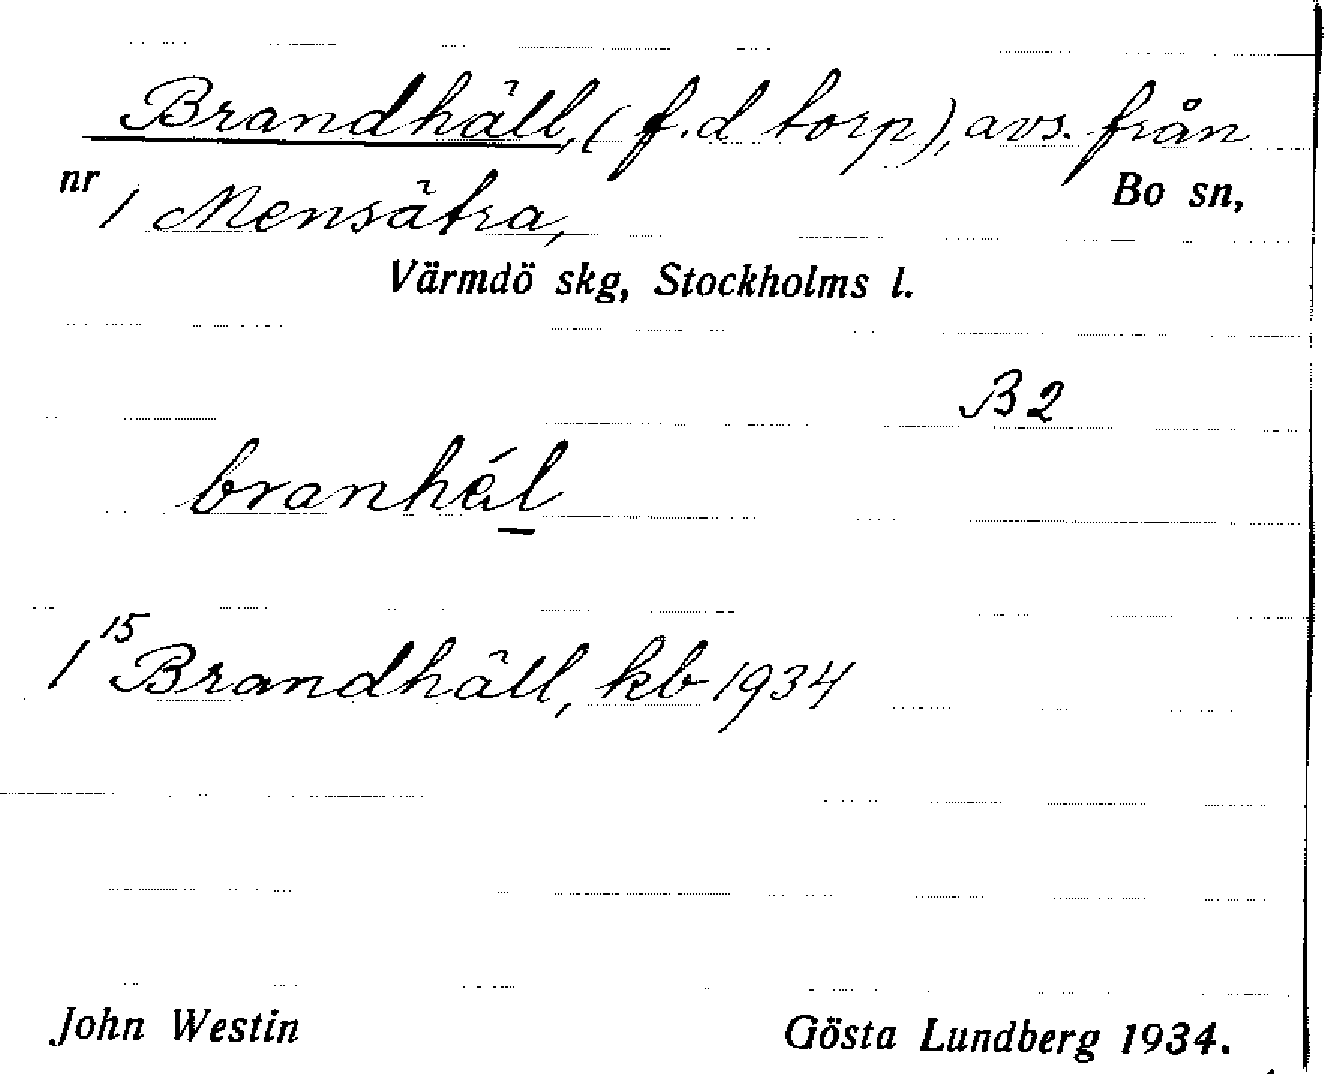 Brandhäll, (f.d torp), avs. från
nr 1 Mensätra, Bo sn,
Värmdö skg, Stockholms l.
B2
branhél
1 15 Brandhäll, kb 1934
John Westin Gösta Lundberg 1934.